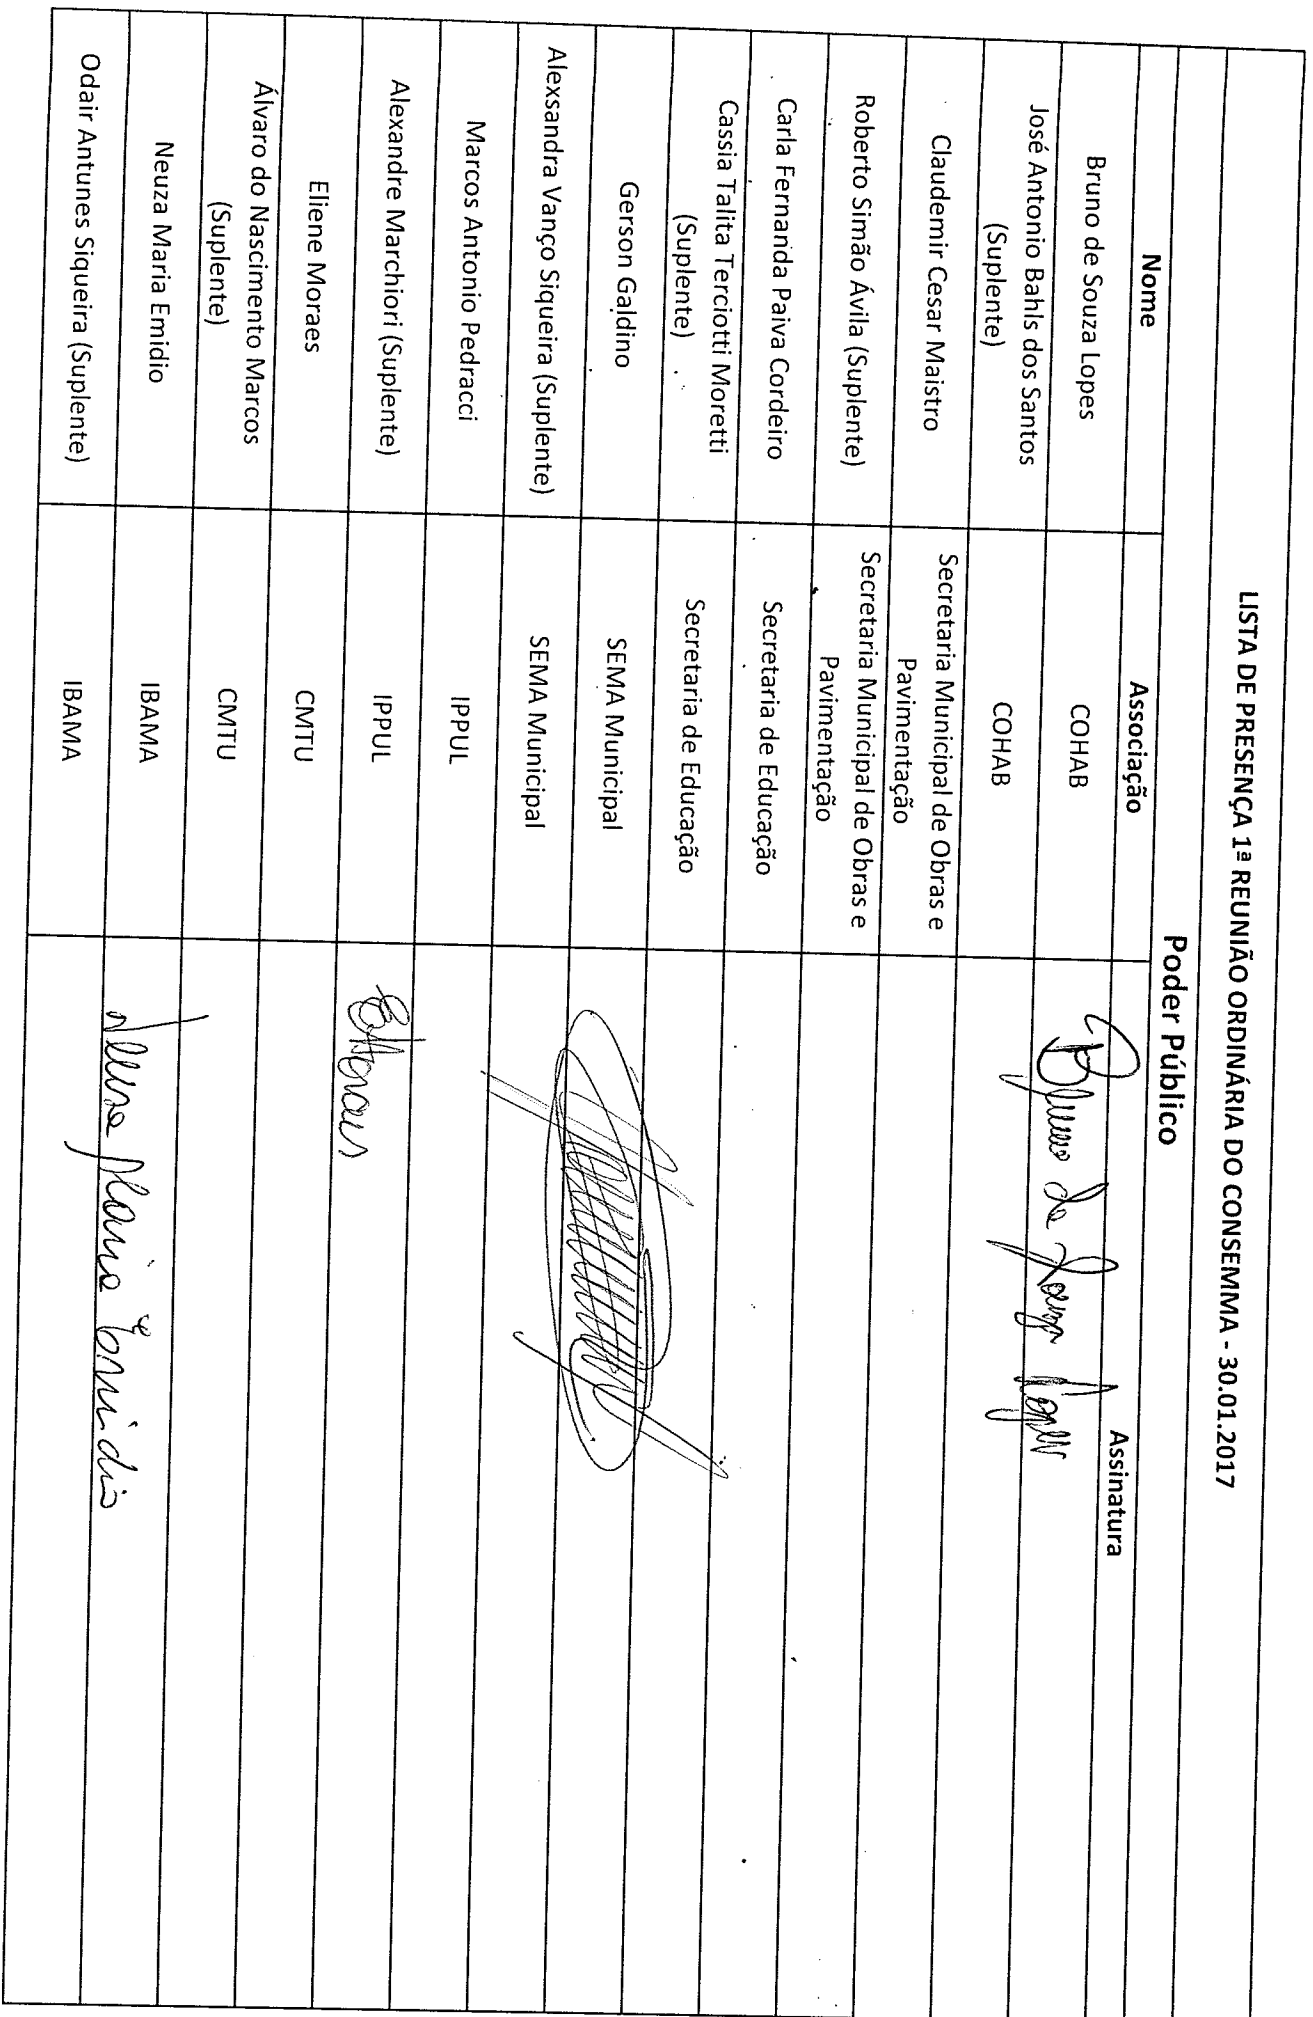 LISTA DE PRESENÇA 1ª REUNIÃO ORDINÁRIA DO CONSEMMA - 30.01.2017
Poder Público
Nome Associação Assinatura
Bruno de Souza Lopes COHAB Bruno de Souza Lopes
José Antonio Bahls dos Santos
(Suplente) COHAB
Claudemir Cesar Maistro Secretaria Municipal de Obras e
Pavimentação
Roberto Simão Ávila (Suplente) Secretaria Municipal de Obras e
Pavimentação
Carla Fernanda Paiva Cordeiro Secretaria de Educação
Cassia Talita Terciotti Moretti
(Suplente) Secretaria de Educação
Gerson Galdino SEMA Municipal
Alexsandra Vanço Siqueira (Suplente) SEMA Municipal
Marcos Antonio Pedracci IPPUL
Alexandre Marchiori (Suplente) IPPUL
Eliene Moraes CMTU EMoraes
Álvaro do Nascimento Marcos
(Suplente) CMTU
Neuza Maria Emidio IBAMA Neuza Maria Emidio
Odair Antunes Siqueira (Suplente) IBAMA